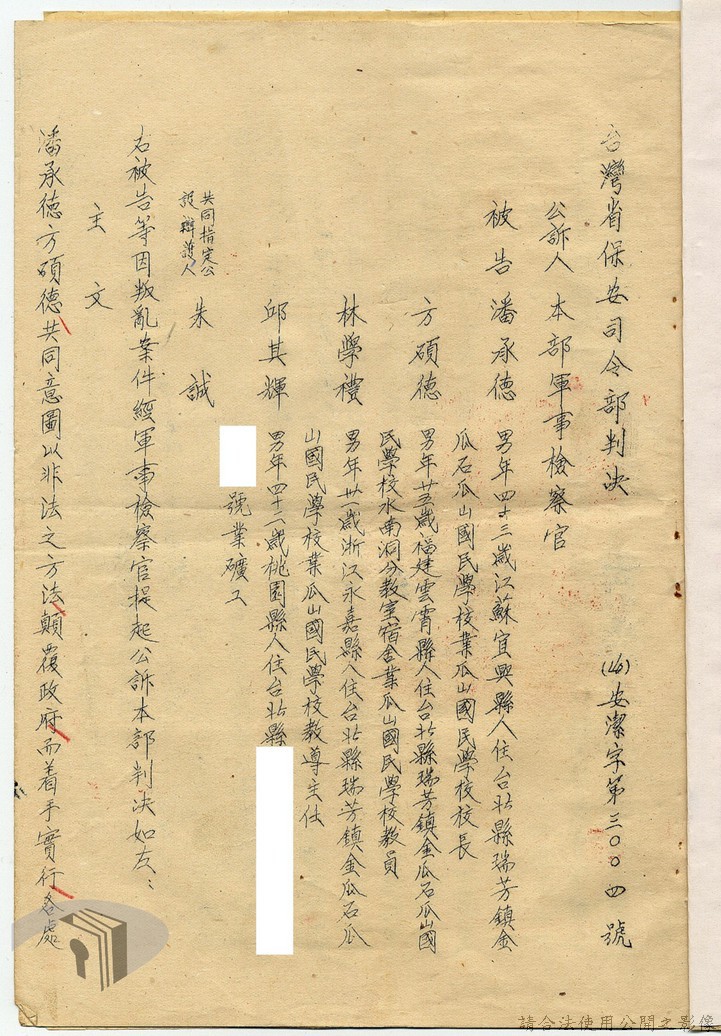 台灣省保安司令部判決
(46)安潔字第三〇〇四號
公訴人 本部軍事檢察官
被告 潘承德 男年四十三歲江蘇宜興縣人住台北縣瑞芳鎮金
瓜石瓜山國民學校業瓜山國民學校校長
方碩德 男年卅五歲福建雲霄縣人住台北縣瑞芳鎮金瓜石瓜山國
民學校水南洞分教室宿舍業瓜山國民學校教員
林學禮 男年卅一歲浙江永嘉縣人住台北縣瑞芳鎮金瓜石瓜
山國民學校業瓜山國民學校教導主任
邱其輝 男年四十二歲桃園縣人住台北縣
號業礦工
共同指定公
設辯護人 朱誠
右被告等因叛亂案件經軍事檢察官提起公訴本部判決如左：
主文
潘承德方碩德共同意圖以非法之方法顛覆政府而着手實行各處
請合法使用公開之影像